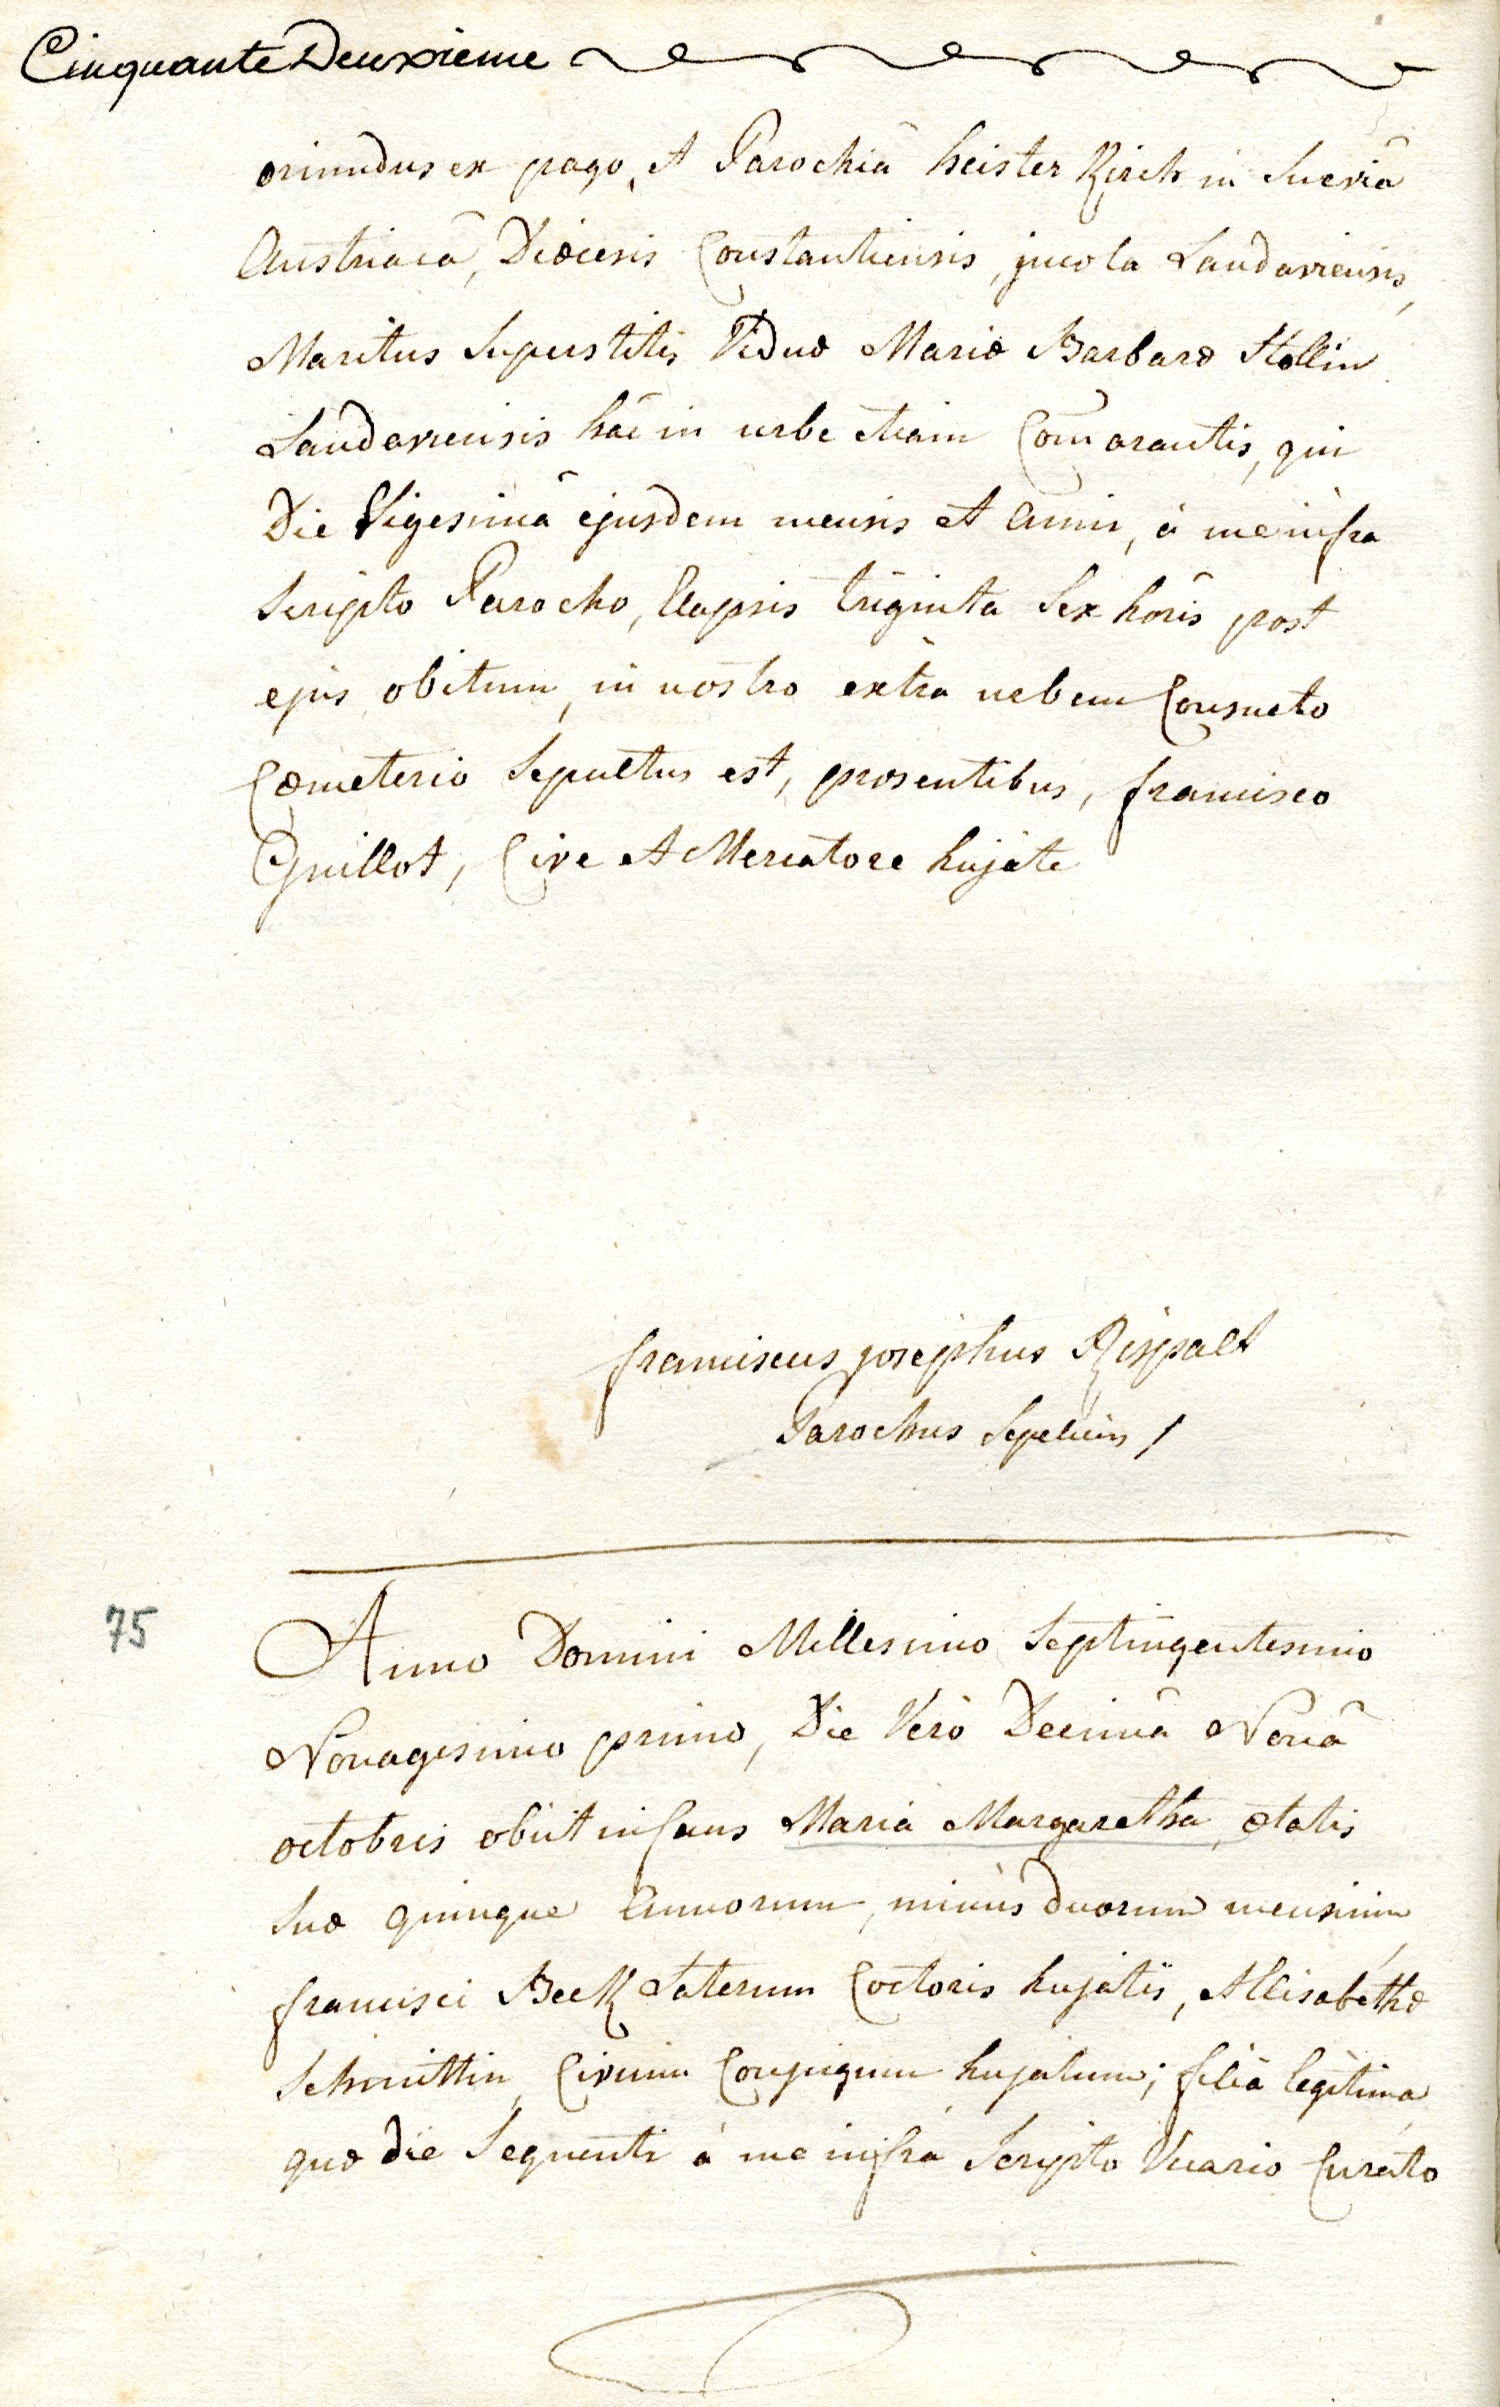 Cinquante Deuxieme
oriundus ex pago, et Parochiâ heister Kirch in Sueviâ
Austriacâ, Dioecesis Constantiensis, incola Landaviensis,
Maritus Superstitis Viduæ Mariæ Barbaræ Stollin
Landaviensis hâc in urbe etiam Com̄orantis, qui
Die Vigesimâ ejusdem mensis et anni, à me infra
Scripto Parocho, Elapsis triginta Sex horis post
ejus obitum, in nostro extra urbem Consueto
Cœmeterio Sepultus est, præsentibus, francisco
Guillot, Cive et Mercatore hujate
franciscus josephus Rispalt
Parochus Sepeliens /
75
Anno Domini Millesimo Septingentesimo
Nonagesimo primo, Die Verò Decimâ Nonâ
octobris obiit infans Maria Margaretha, ætatis
Suæ quinque annorum, minus duorum mensium,
francisci Beck Laterum Coctoris hujatis, et Elisabethæ
Schmittin, Civium Conjugum hujatum; filia legitima
quæ die Sequenti à me infrà Scripto Vicario Curato